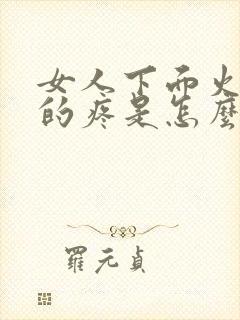 女人下面火
的疼是怎麼
羅元貞